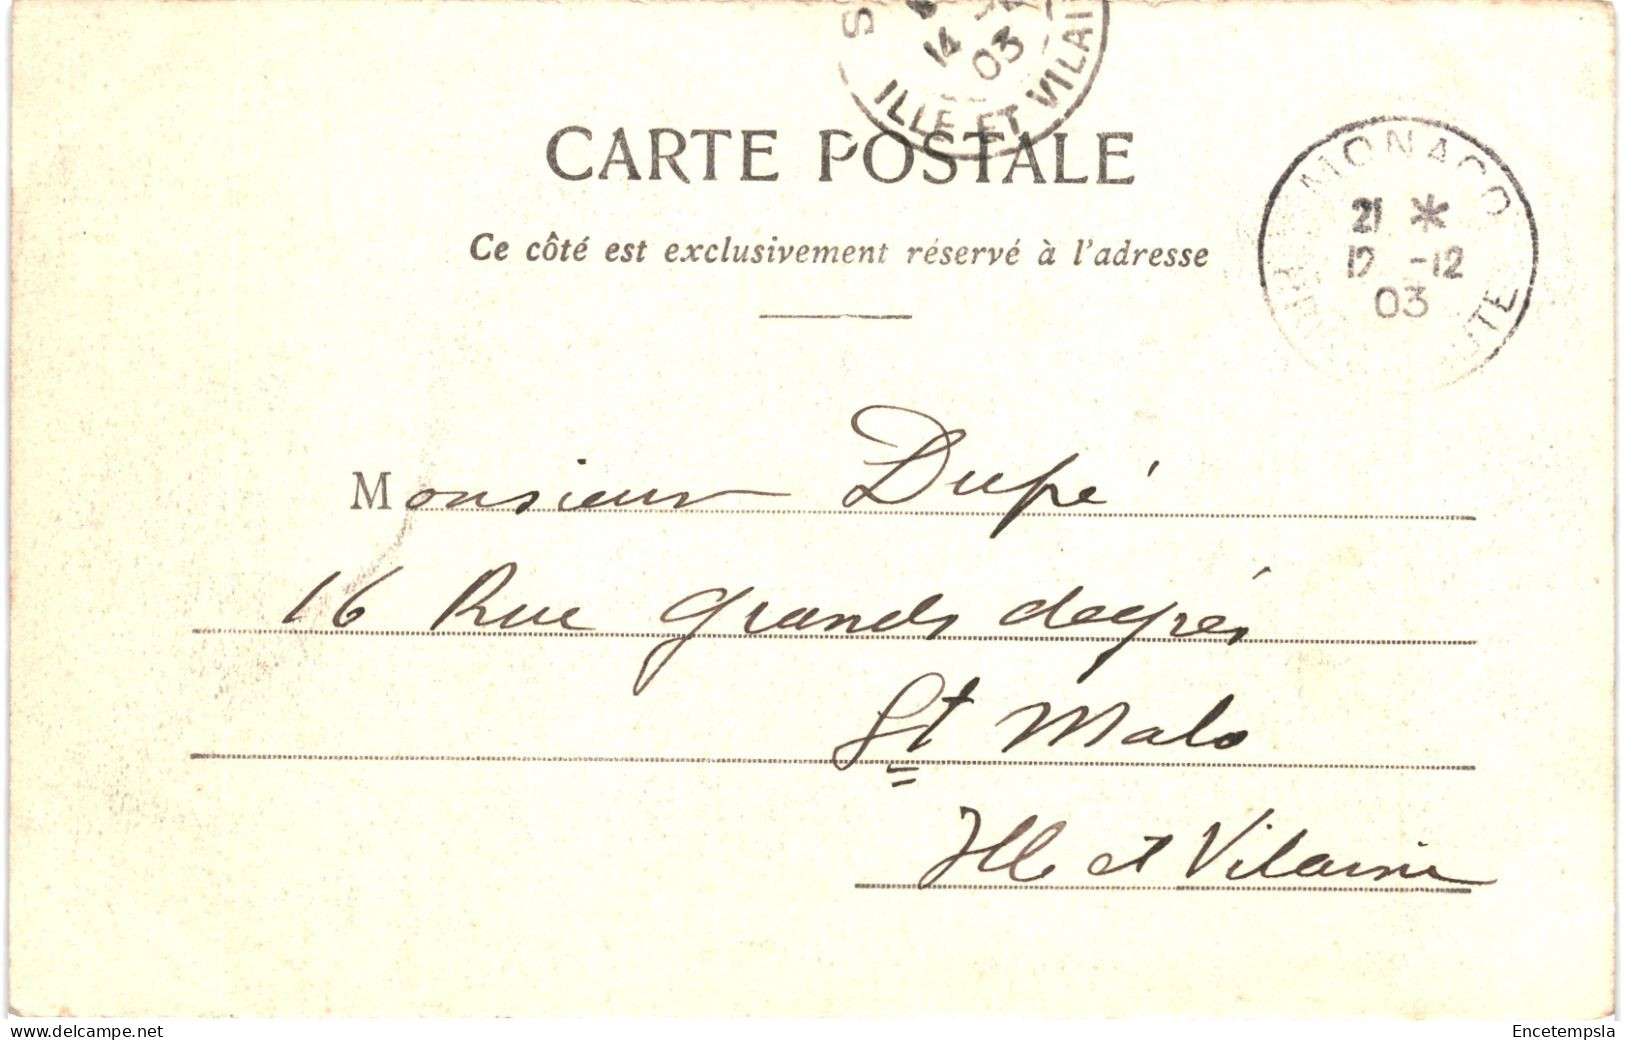 S
14 03
ILLE-ET-VILAI
CARTE POSTALE
Ce côté est exclusivement réservé à l'adresse
MONACO
21 *
12 -12
03
Monsieur Dupé
16 Rue Grands degrés
St Malo
Ille et Vilaine
www.delcampe.net
Encetempsla